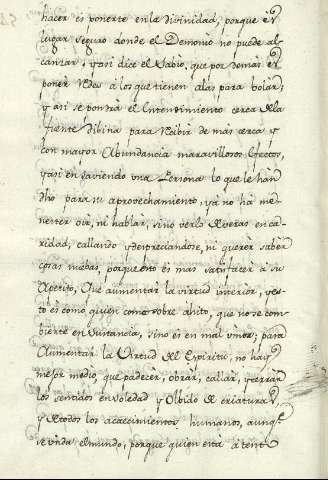 hacer es ponerte en la Divinidad, porque es
lugar seguro donde el Demonio no puede al-
canzar, y asi dice el Sabio, que por demas es
poner Redes à los que tienen alas para bolar;
y asi se pondrà el Entendimiento cerca de la
fuente Dibina para Recibir de mas cerca, y
con mayor Abundancia maravillosos Efectos,
y asi en saviendo una Persona lo que le han
dho para su aprovechamiento, ya no ha me-
nester oir, ni hablar, sino verlo deveras en ca-
ridad, callando y despreciandose, ni querer saber
cosas nuebas, porque esto es mas satisfacer à su
Apetito, Que aumentar la virtud interior, y es-
to es como quien come sobre ahito, que no se com-
bierte en Sustancia, sino es en mal umor; para
Aumentar la Virtud del Espiritu, no hay
mejor medio, que padecer, obrar, callar, y cerrar
los sentidos en Soledad y Olbido de criaturas,
y de todos los acaecimientos humanos, aunqe
se unda el mundo; porque quien està atento